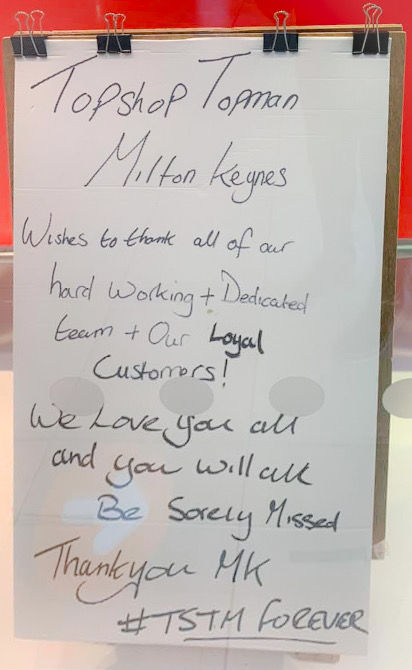 Topshop Topman
Milton Keynes
Wishes to thank all of our
hard working + Dedicated
team + Our Loyal
Customers!
We Love you all
and you will all
Be Sorely Missed
Thankyou MK
#TSTM FOREVER